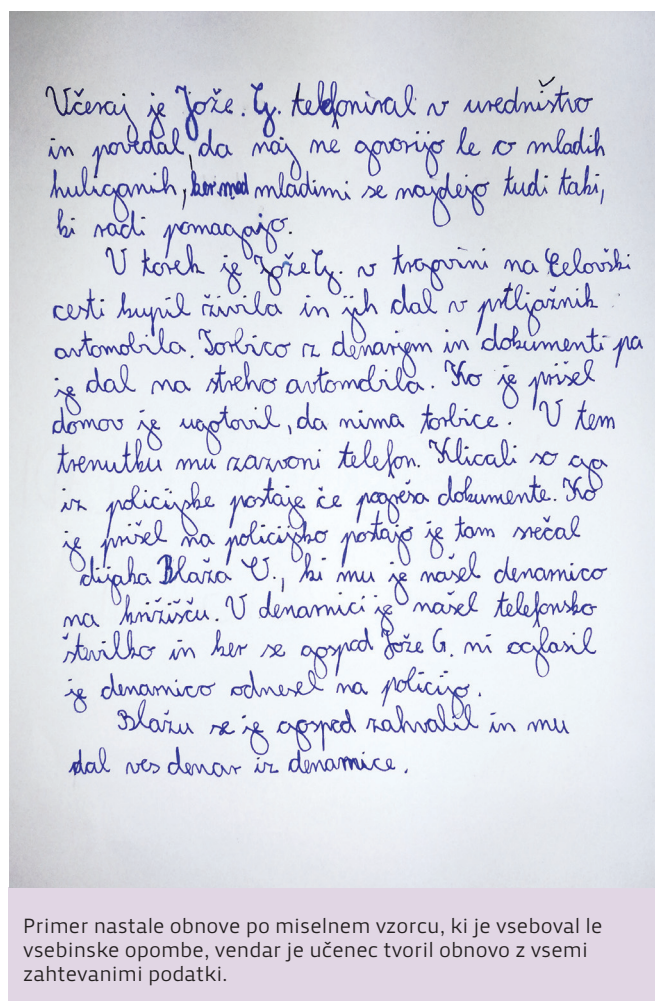 Včeraj je Jože. G. telefoniral v uredništvo
in povedal, da naj ne govorijo le o mladih
huliganih, ker med mladimi se najdejo tudi taki,
ki radi pomagajo.
V torek je Jože G. v trgovini na Celovški
cesti kupil živila in jih dal v prtljažnik
avtomobila. Torbico z denarjem in dokumenti pa
je dal na streho avtomobila. Ko je prišel
domov je ugotovil, da nima torbice. V tem
trenutku mu zazvoni telefon. Klicali so ga
iz policijske postaje če pogreša dokumente. Ko
je prišel na policijsko postajo je tam srečal
dijaka Blaža U., ki mu je našel denarnico
na križišču. V denarnici je našel telefonsko
številko in ker se gospod Jože G. ni oglasil
je denarnico odnesel na policijo.
Blažu se je gospod zahvalil in mu
dal ves denar iz denarnice.
Primer nastale obnove po miselnem vzorcu, ki je vseboval le
vsebinske opombe, vendar je učenec tvoril obnovo z vsemi
zahtevanimi podatki.